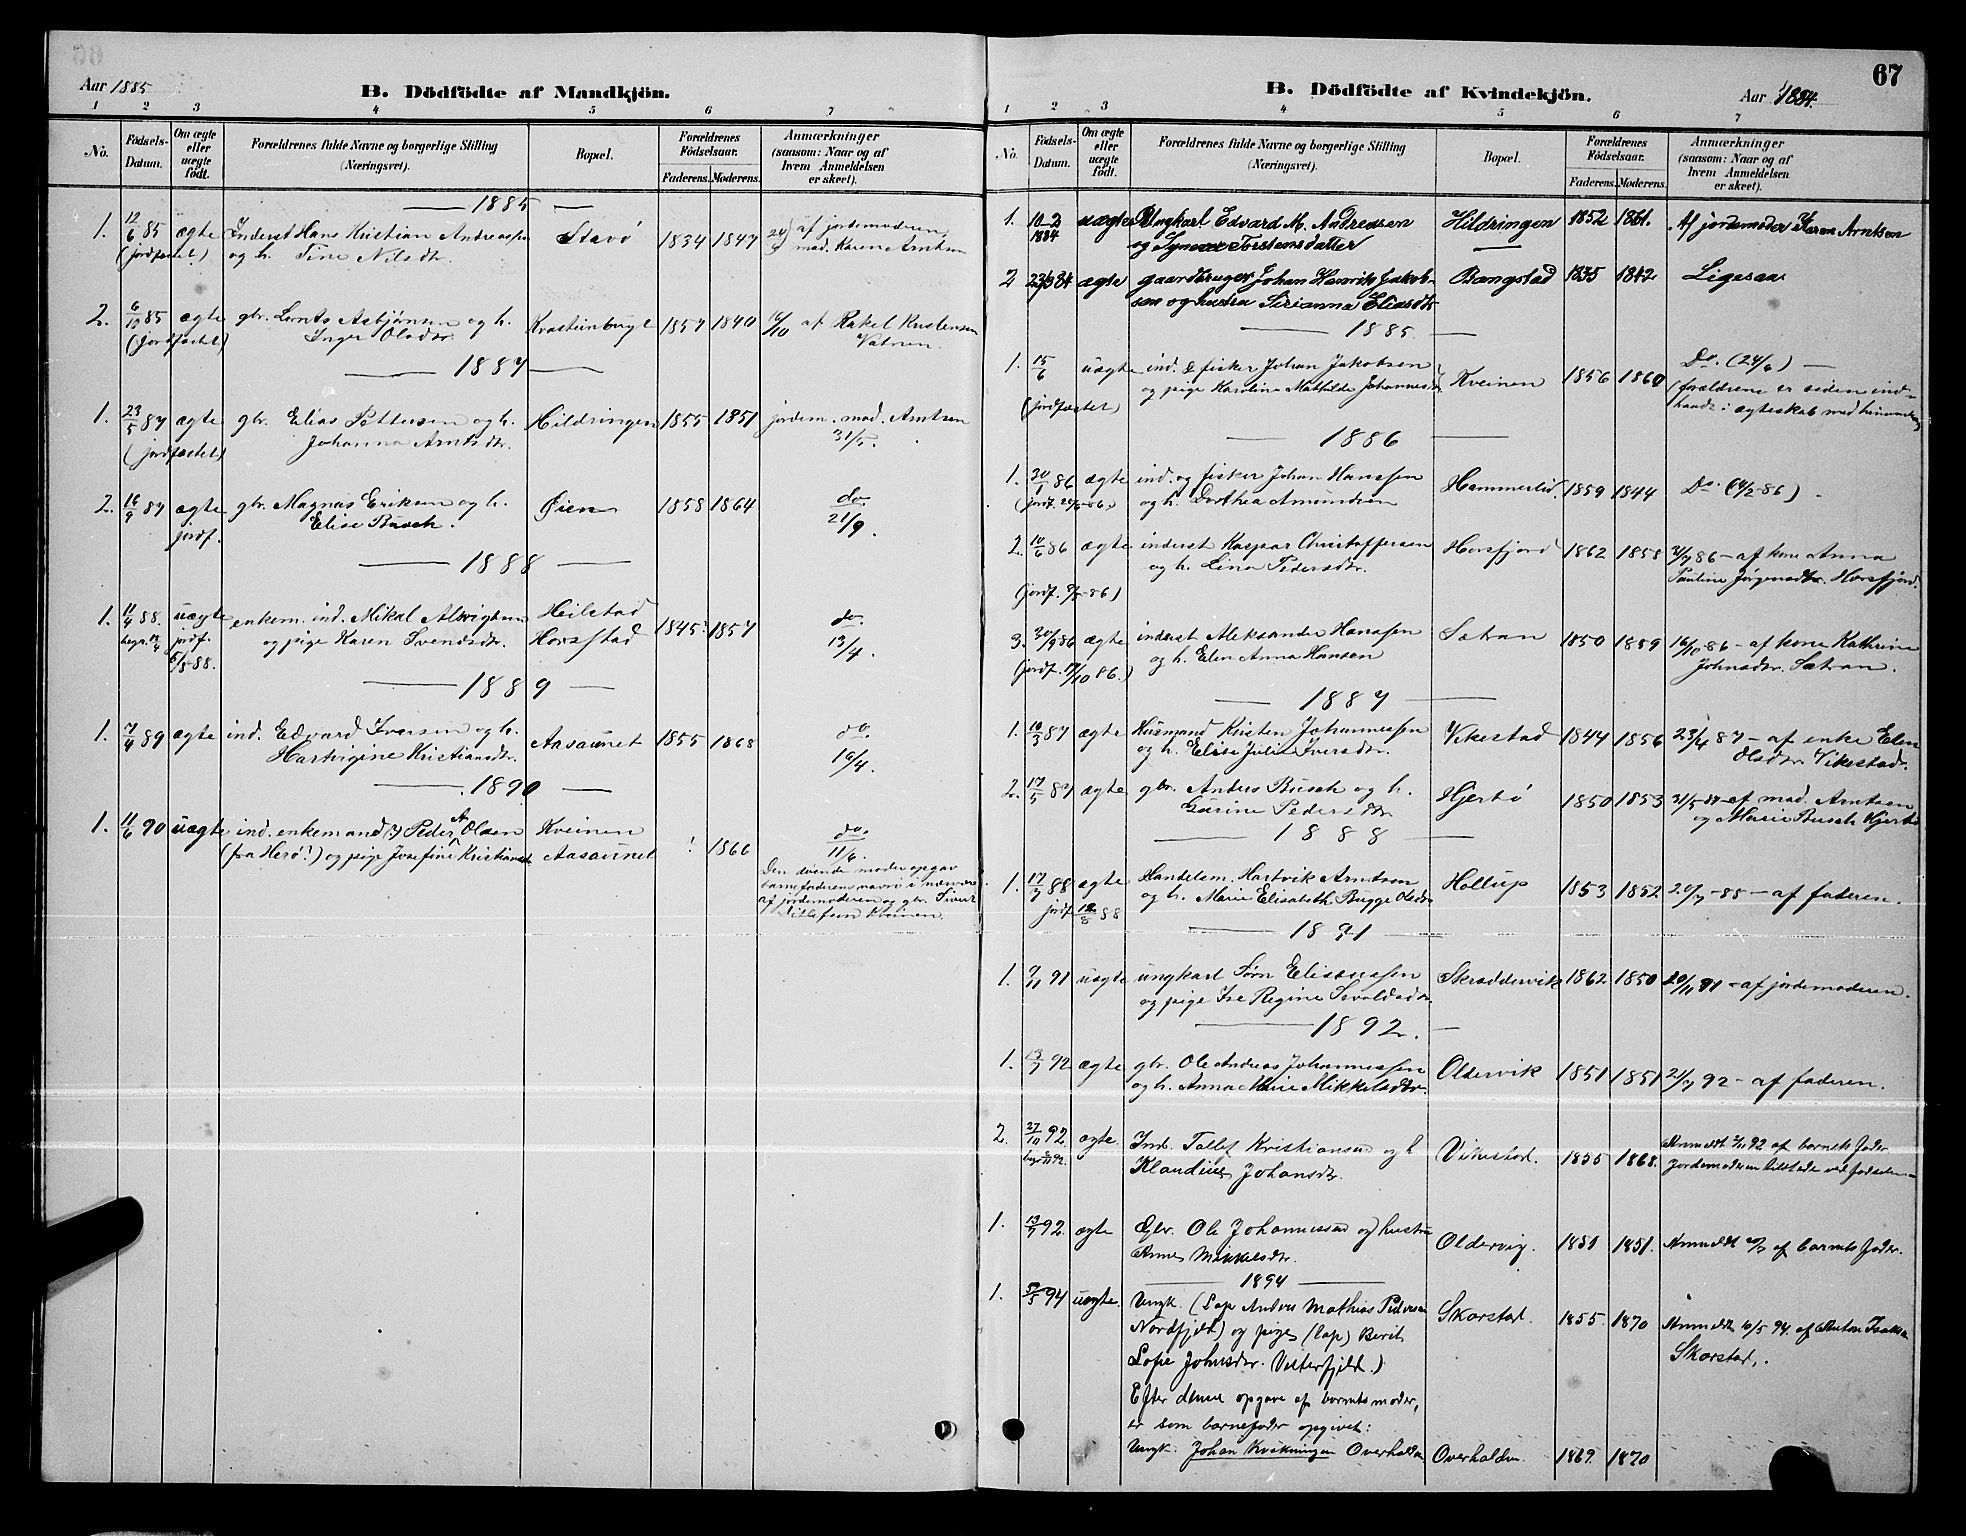 Aar 1885
B. Dödfödte af Mandkjön.
1 2 3 4 5 6 7
No.
Födsels-Datum.
Om ægte eller uægte födt.
Forældrenes fulde Navne og borgerlige Stilling (Næringsvei).
Bopæl.
Forældrenes Födselsaar.
Faderens. Moderens.
Anmærkninger (saasom: Naar og af hvem Anmeldelsen er skeet).
1885
1. 12/6 85 ægte Inderst Hans Kristian Andreassen Stavö 1834 1847 af jordemoderen,
(jordfæstet) og h. Tine Nilsdtr. mad. Karen Arntsen
2. 6/10 85 ægte gbr. Lornts Asbjörnsen og h. 1857 1840 16/10 af Rakel Kristensen
(jordfæstet) Inger Olsdtr. Vatren.
1887
1. 23/5 87 ægte gbr. Elias Pettersen og h. Hildringen 1855 1851 jordem. mad. Arntsen
(jordfæstet) Johanna Arntsdtr. 31/5.
2. 16/9 87 ægte gbr. Magnus Eriksen og h. Øien 1858 1864 do.
jordf. Elise Busch. 21/9
1888
1. 11/4 88. uægte enkem. ind. Mikal Albrigtsen Heilstad 1845? 1857 do.
jordf. og pige Karen Svendsdtr. Horsstad 13/4.
5/8-88.
1889
1. 7/4 89 ægte ind. Edvard Iversen og h. Aasaunet 1855 1868 do.
Hartvigine Kristiansdtr. 16/4.
1890
1. 11/6 90 uægte ind. enkemand(?) Peder A Olsen Kveinen ? 1866 do.
(fra Herö?) og pige Josefine Kristiansdtr Aasaunet 11/6.
Den döende moder opgav
barnefaderens navn i nærvær
af jordemoderen og gbr. Sivert
Kveinen.
67
B. Dödfödte af Kvindekjön.
Aar 1884.
1 2 3 4 5 6 7
No.
Födsels-Datum.
Om ægte eller uægte födt.
Forældrenes fulde Navne og borgerlige Stilling (Næringsvei).
Bopæl.
Forældrenes Födselsaar.
Faderens. Moderens.
Anmærkninger (saasom: Naar og af hvem Anmeldelsen er skeet).
1. 10-2 1884 uægte Ungkarl Edvard M. Andreasen Hildringen 1852 1861. Af jordemoder Karen Arntsen
og Torstensdatter
2 23/3 84 ægte gaardbruger Johan Henrik Jakob- Bangstad 1835 1842 Ligesaa
sen og hustru Sirianna Eliasdtr
1885.
1. 15/6 uægte ind. & fisker Johan Jakobsen Kveinen 1856 1860 Do. (24/6)
(jordfæstet) og pige Karolina Mathilde Johannesdtr (forældrene er siden ind-
traadt i ægteskab med hinanden)
1886
1. 30/1 86 ægte ind. og fisker Johan Hanssen Hammerlid. 1859 1844 Do (4/2-86).
og h. Dorthea Amundsen
2. 10/6 86 ægte inderst Kaspar Christoffersen Horsfjord 1862 1858 2/7 86 - af kone Anna
og h. Lina Pedersdtr. Pauline Jörgensdtr. Horsfjord.
3. 30/9 86 ægte inderst Aleksander Hanssen Sætran 1850 1859 16/10-86 - af kone Kathrine
(jordf. 17/10 86.) og h. Elen Anna Hansen Johnsdtr. Sætran.
1887
1. 10/3 87 ægte Husmand Kristen Johannessen Vikestad 1844 1856 23/4 87 - af enke Elen
og h. Elise Julie Iversdtr. Olsdtr. Vikestad.
2. 17/5 87 ægte gbr. Anders Busch og h. Hjertö 1850 1853 31/5 87 af mad. Arntsen
Gurine Pedersdtr og Marie Busch Hjertö
1888
1. 17/7 88 ægte Handelsm. Hartvik Arntsen Hollup 1853 1852 20/7-88 - af faderen.
jordf. 88 og h. Marie Elisabeth Bugge Olsdtr
1891
1. 9/11 91 uægte ungkarl Sörn Eliseussen Skræddervik 1862 1850 20/11 91 - af jordemoderen.
og pige Regine Sivaldsdtr.
1892.
1. 13/7 92 ægte gbr. Ole Andreas Johannessen Oldervik 1851 1851 21/7 92 - af faderen.
og h. Anna Marie Mikkelsdtr.
2. 27/10 92. ægte. Ind. Tollef Kristiansen og h Vikestad. 1855 1868. Anmeldt 2/11 92 af barnets fader.
Klaudine Johansdtr. Jordemoderen tilstede ved fødselen
1. 13/7 92. ægte Gbr. Ole Johannessen og hustru Oldervig. 1851 1851. Anmeldt af barnets fader.
Anne Mikkelsdtr.
1894
1. 5/5 94 uægte. Ungk. (Lap Anders Mathias Pedersen Skorstad. 1855. 1870 Anmeldt 10/5 94. af Anton Isaksen
Nordfjeld) og pige (lap) Berit Skorstad.
Lope Johnsdtr. Vesterfjeld.)
Efter denne opgave af barnets moder,
er som barnefader opgivet:
Ungk. Johan Kvikningen Overhalden Overhalden. 1867. 1870